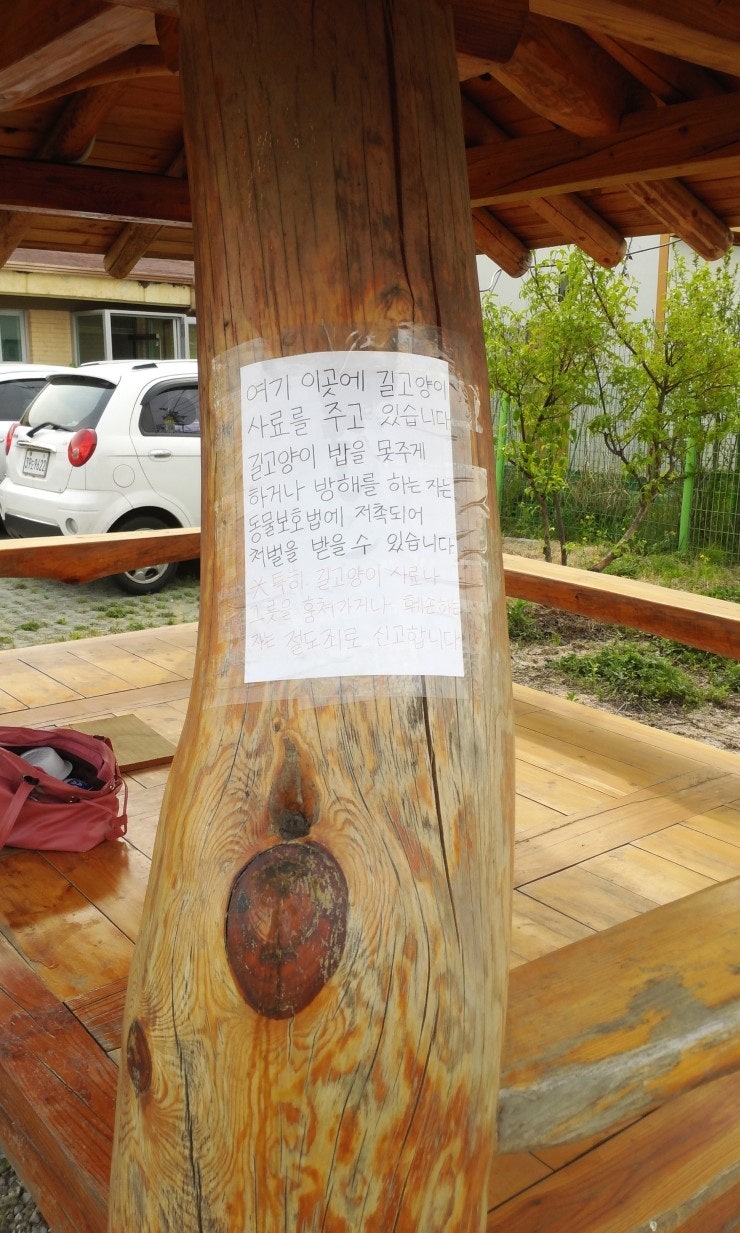 여기 이곳에 길고양이
사료를 주고 있습니다
길고양이 밥을 못주게
하거나 방해를 하는 자는
동물보호법에 저촉되어
처벌을 받을수 있습니다
※특히. 길고양이 사료나
그릇을 훔쳐가거나. 훼손하는
자는 절도죄로 신고합니다